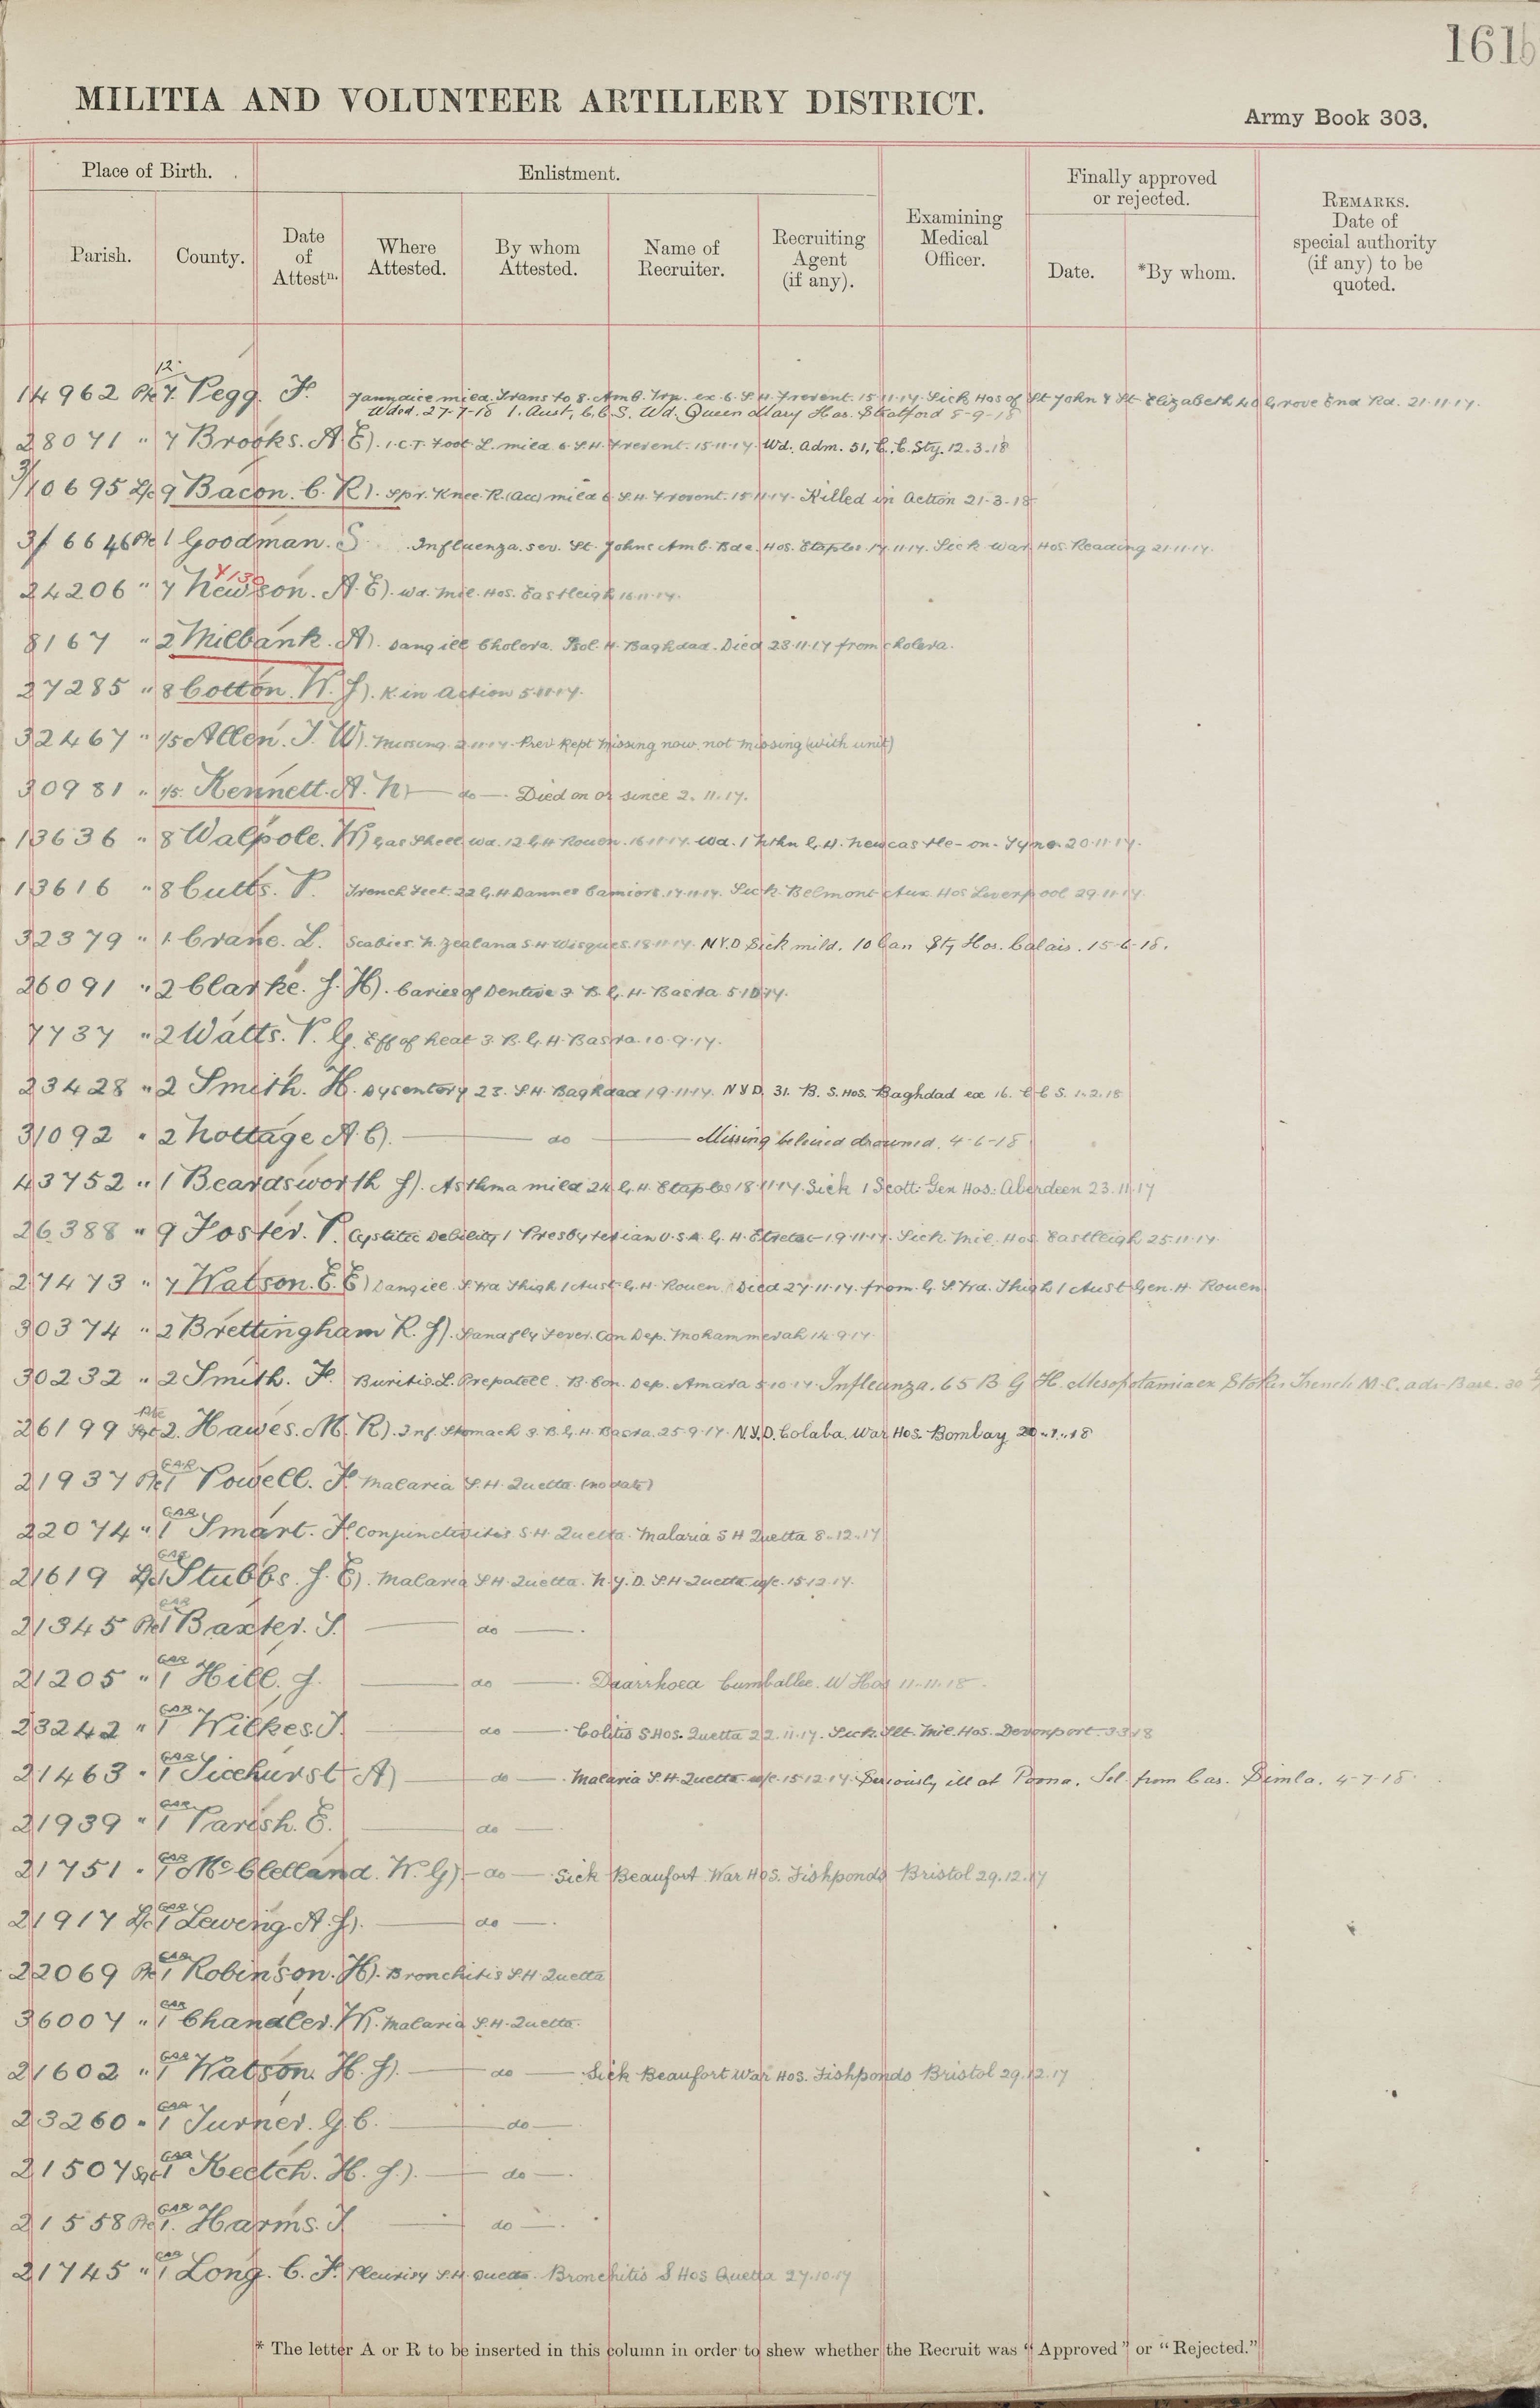 161b
MILITIA AND VOLUNTEER ARTILLERY DISTRICT.
Army Book 303.
Place of Birth.
Enlistment.
Finally approved or rejected.
Parish.
County.
Date of Attestn.
Where Attested.
By whom Attested.
Name of Recruiter.
Recruiting Agent (if any).
Examining Medical Officer.
Date.
*By whom.
REMARKS. Date of special authority (if any) to be quoted.
12
14962 Pte 7. Pegg. F. Jaundice mild. Trans to 8. Amb. Trp. ex. 6. S.H. Frevent. 15.11.17. Sick Hos of St John & St Elizabeth 40 Grove End Rd. 21.11.17.
Wded. 27-7-18 1. Aust, C.C.S. Wd. Queen Mary Hos. Stratford 5-9-18
28071 " 7 Brooks. A.E). I.C.T. Foot L. mild 6. S.H. Frevent. 15.11.17. Wd. Adm. 51, C.C. Stg. 12.3.18
3/10695 L/c 9 Bacon. C. R). Spr. Knee. R. (Acc) mild 6 S.H. Frevent. 15.11.17. Killed in Action 21-3-18
3/6646 Pte 1 Goodman. S. Influenza. sev. St. Johns Amb. Bde. Hos. Etaples 17.11.17. Sick War Hos. Reading 21.11.17.
24206 " 7 Newson. A. E). Wd. Mil. Hos. Eastleigh 16.11.17.
8167 " 2 Milbank. A). Dang ill Cholera. Isol. H. Baghdad. Died 23.11.17 from cholera.
27285 " 8 Cotton. W. J). K. in action 5.11.17.
32467 " 1/5 Allen. J. W). Missing. 2.11.17. Prev Rept Missing now not missing (with unit)
30981 " 1/5. Kennett. A. N) — do — Died on or since 2. 11. 17.
13636 " 8 Walpole. W) Gas Shell wd. 12 G.H Rouen. 16.11.17. Wd. 1 Nthn G.H. Newcastle-on-Tyne. 20.11.17.
13616 " 8 Cutts. P. Trench Feet. 22 G.H Dannes Camiers. 17.11.17. Sick. Belmont Aux. Hos Liverpool 29.11.17.
32379 " 1. Crane. L. Scabies. N. Zealand S.H Wisques. 18.11.17. N.Y.D Sick mild. 10 Can Sty Hos. Calais. 15-6-18.
26091 " 2 Clarke. J. H). Caries of Dentine 3. B.G.H. Basra 5.10.17.
7737 " 2 Watts. P. G. Eff of heat 3. B.G.H. Basra. 10.9.17.
23428 " 2 Smith. H. Dysentery 23. S.H. Baghdad 19.11.17. N.Y.D. 31. B. S. Hos. Baghdad ex 16. C C S. 1.2.18
31092 " 2 Nottage A. C). — do — Missing believed drowned. 4-6-18
43752 " 1 Beardsworth J). Asthma mild 24 G.H. Etaples 18.11.17. Sick 1 Scott. Gen Hos: Aberdeen 23.11.17
26388 " 9 Foster. P. Cystitis Debility 1 Presbyterian U.S.A. G.H. Etretat 19.11.17. Sick. Mil. Hos. Eastleigh 25.11.17.
27473 " 7 Watson. E. E) Dang ill. S. Fra Thigh 1 Aust G.H. Rouen. Died 27.11.17. from G. S. Fra. Thigh 1 Aust Gen. H. Rouen
30374 " 2 Brettingham R. J). Sandfly Fever. Con Dep. Mohammerah 14.9.17.
30232 " 2 Smith. F. Bursitis. L. Prepatell. B. Con. Dep. Amara 5.10.17. Influenza. 65 B G H. Mesopotamia ex Stokes Trench M. C. adv. Base. 30
26199 Pte 2. Hawes. M. R). Inf. Stomach 3. B.G.H. Basra. 25.9.17. N.Y.D. Colaba. War Hos. Bombay 20.1.18
21937 Pte GAR 1 Powell. F. Malaria S.H. Quetta. (no date)
22074 " GAR 1 Smart. F. Conjunctivitis S.H. Quetta. Malaria S H Quetta 8.12.17
21619 L/c GAR Stubbs. J. E). Malaria S.H. Quetta. N.Y.D. S.H. Quetta w/e. 15.12.17.
21345 Pte GAR 1 Baxter. S. — do —.
21205 " GAR 1 Hill. J. — do —. Diarrhoea Cumballa. W Hos 11.11.18.
23242 " GAR 1 Wilkes J. — do —. Colitis S Hos. Quetta 22.11.17. Sick. Mil. Hos. Devonport. 3.3.18
21463 " GAR 1 Ticehurst A) — do —. Malaria S.H. Quetta w/e. 15.12.17. Seriously ill at Poona. Tel. from Cas. Simla. 4-7-18.
21939 " GAR 1 Parish. E. — do —.
21751 " GAR 1 McClelland. W. G) — do — Sick Beaufort War Hos. Fishponds Bristol 29.12.17
21917 L/c GAR 1 Levering. A. J). — do —.
22069 Pte GAR 1 Robinson. H). Bronchitis S.H Quetta
36007 " GAR 1 Chandler. W. Malaria S.H. Quetta.
21602 " GAR 1 Watson. H. J). — do — Sick Beaufort War Hos. Fishponds Bristol 29.12.17
23260 " GAR 1 Turner. G. C. — do —.
21507 Sgt GAR 1 Keetch. H. J.). — do —.
21558 Pte GAR 1. Harms. J — do —.
21745 " GAR 1 Long. C. F. Pleurisy S.H. Quetta. Bronchitis S Hos Quetta 27.10.17
* The letter A or R to be inserted in this column in order to shew whether the Recruit was "Approved" or "Rejected."